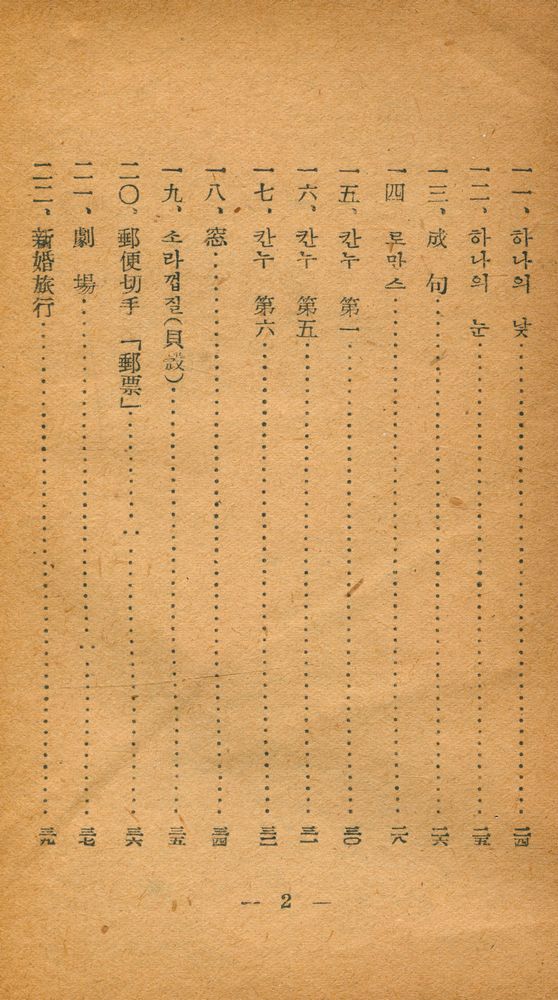 一一、하나의 낯……二四
一二、하나의 눈……二五
一三、成句……二六
一四 로맨스……二八
一五、칸누 第一……三〇
一六、칸누 第五……三一
一七、칸누 第六……三三
一八、窓……三四
一九、소라껍질(貝殼)……三五
二〇、郵便切手 「郵票」……三六
二一、劇場……三七
二二、新婚旅行……三九
— 2 —